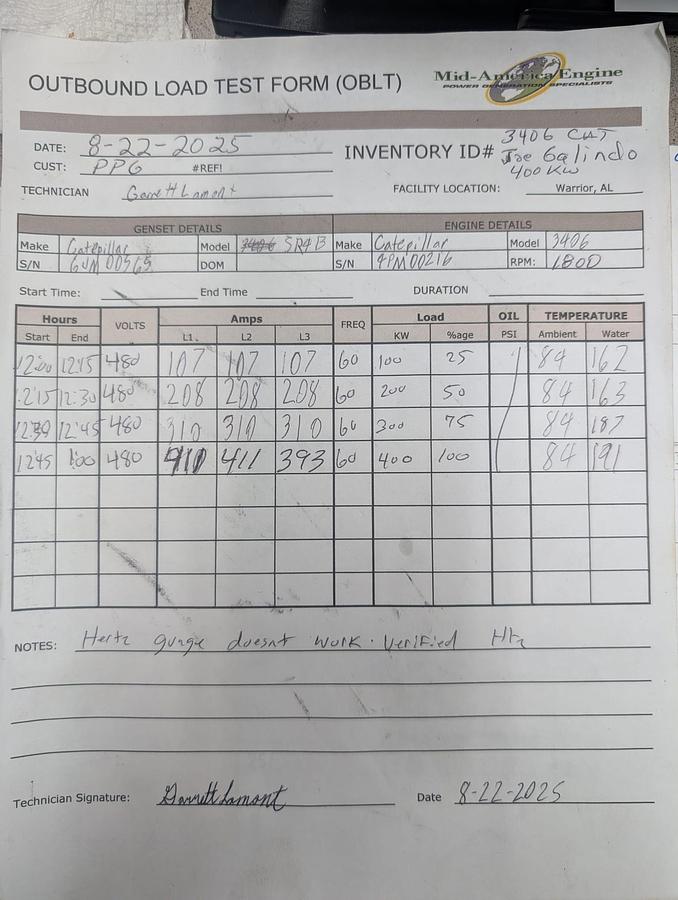 OUTBOUND LOAD TEST FORM (OBLT)
Mid-America Engine
POWER GENERATION SPECIALISTS
DATE: 8-22-2025
CUST: PPG #REF!
TECHNICIAN Garrett Lamont
INVENTORY ID# 3406 CAT
Joe Galindo
400 KW
FACILITY LOCATION: Warrior, AL
GENSET DETAILS ENGINE DETAILS
Make Caterpillar Model 3406 SR4B Make Caterpillar Model 3406
S/N 6UM00565 DOM S/N 4PM00216 RPM: 1800
Start Time: End Time DURATION
Hours VOLTS Amps FREQ Load OIL TEMPERATURE
Start End L1. L2 L3 KW %age PSI Ambient Water
12:00 12:15 480 107 107 107 60 100 25 84 162
12:15 12:30 480 208 208 208 60 200 50 84 163
12:30 12:45 480 310 310 310 60 300 75 84 187
1245 1:00 480 410 411 393 60 400 100 84 191
NOTES: Hertz guage doesnt work. Verified Htz
Technician Signature: Garrett Lamont Date 8-22-2025